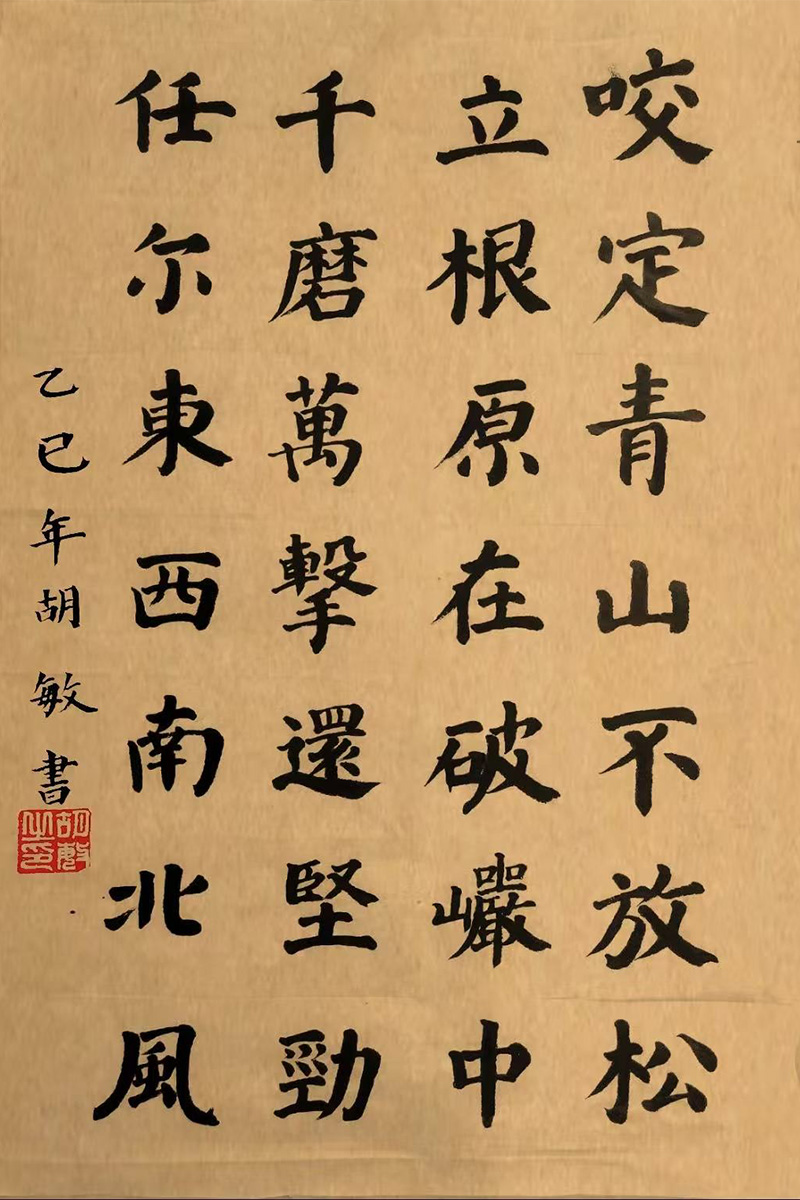 咬定青山不放松
立根原在破巗中
千磨萬擊還堅勁
任尔東西南北風
乙巳年胡敏書
胡敏之印